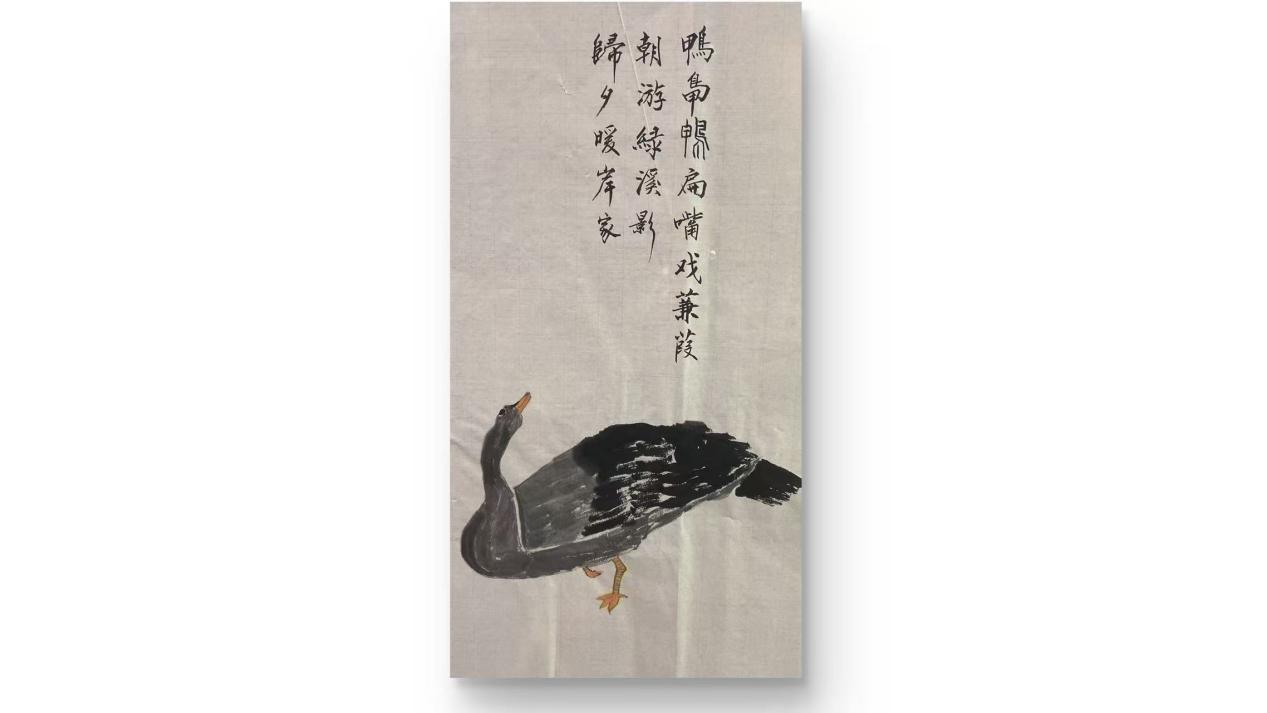 鴨鴨鴨扁嘴戏蒹葭
朝游緑溪影
歸夕暖岸家